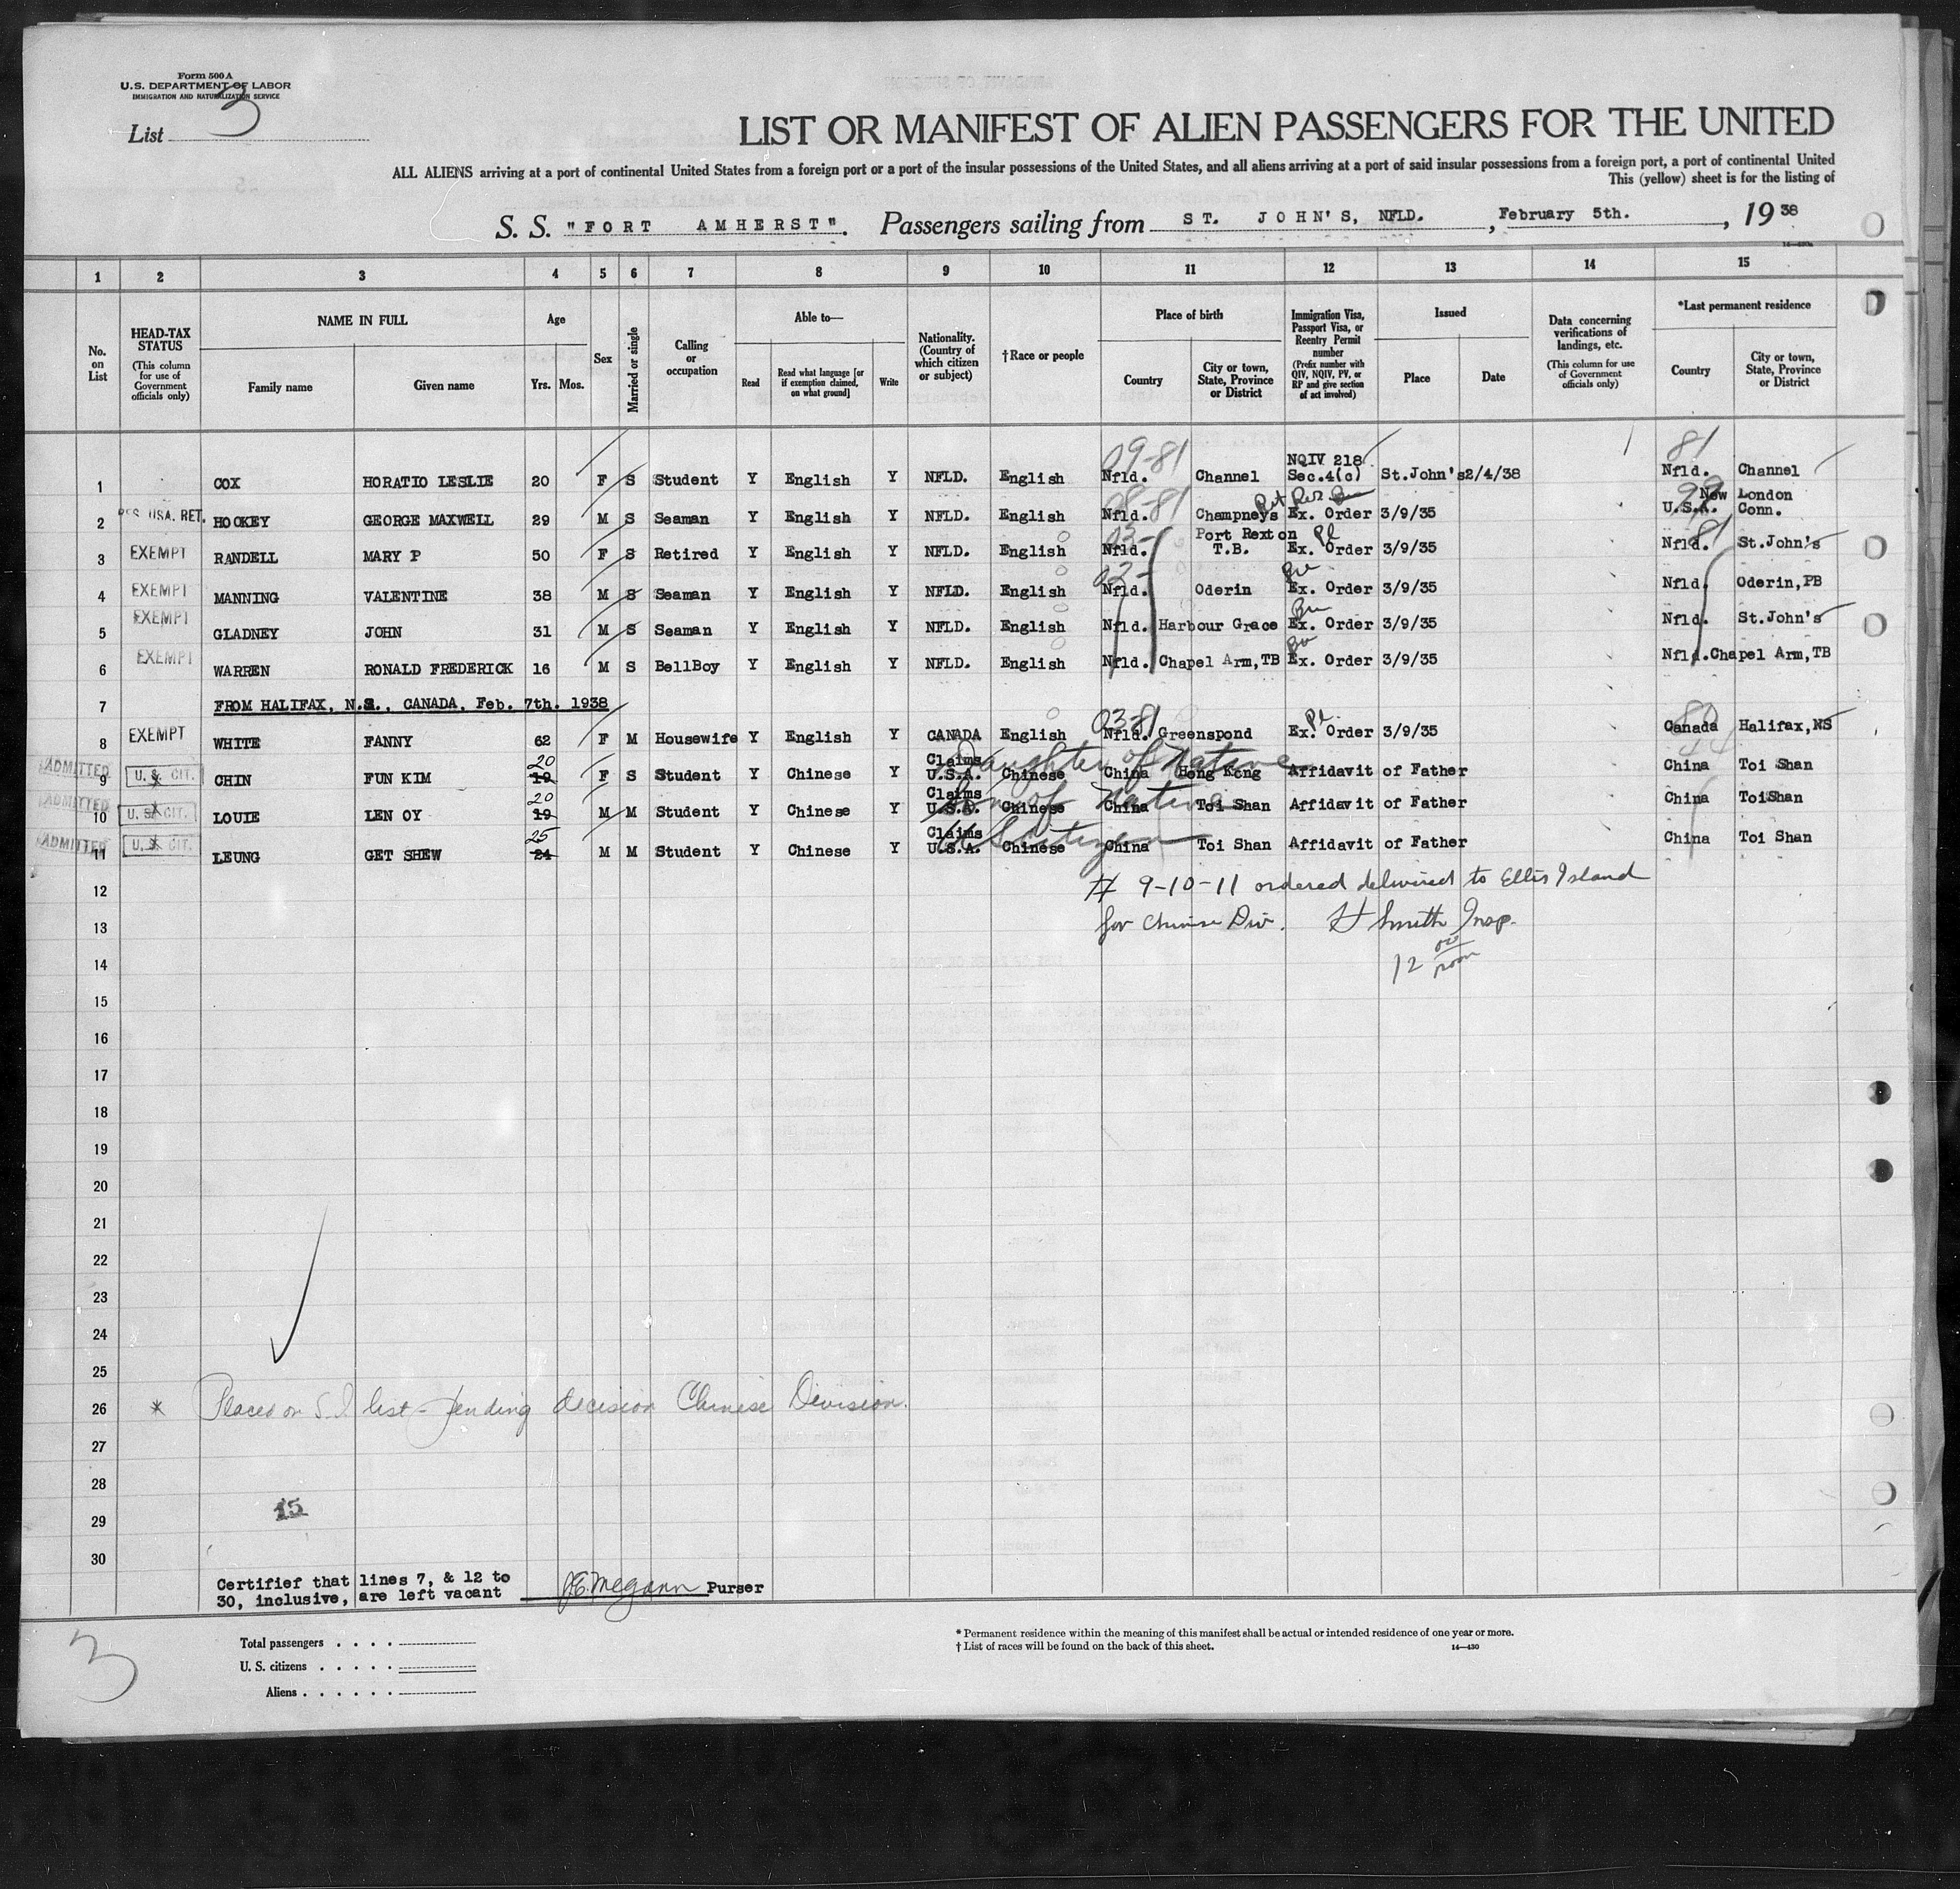 Form 500 A
U.S. DEPARTMENT OF LABOR
IMMIGRATION AND NATURALIZATION SERVICE
List 3
LIST OR MANIFEST OF ALIEN PASSENGERS FOR THE UNITED
ALL ALIENS arriving at a port of continental United States from a foreign port or a port of the insular possessions of the United States, and all aliens arriving at a port of said insular possessions from a foreign port, a port of continental United
This (yellow) sheet is for the listing of
S. S. "FORT AMHERST". Passengers sailing from ST. JOHN'S, NFLD., February 5th., 1938
1 2 3 4 5 6 7 8 9 10 11 12 13 14 15
No. on List
HEAD-TAX STATUS (This column for use of Government officials only)
NAME IN FULL
Family name Given name
Age
Yrs. Mos.
Sex
Married or single
Calling or occupation
Able to—
Read Read what language [or if exemption claimed, on what ground] Write
Nationality. (Country of which citizen or subject)
† Race or people
Place of birth
Country City or town, State, Province or District
Immigration Visa, Passport Visa, or Reentry Permit number (Prefix number with QIV, NQIV, PV, or RP and give section of act involved)
Issued
Place Date
Data concerning verifications of landings, etc. (This column for use of Government officials only)
*Last permanent residence
Country City or town, State, Province or District
09-81 81
1 COX HORATIO LESLIE 20 F S Student Y English Y NFLD. English Nfld. Channel NQIV 218 Sec.4(c) St.John's 2/4/38 Nfld. Channel
08-81
2 USA. RET. HOOKEY GEORGE MAXWELL 29 M S Seaman Y English Y NFLD. English Nfld. Champneys Ex. Order 3/9/35 U.S.A. New London Conn.
03- 81
3 EXEMPT RANDELL MARY P 50 F S Retired Y English Y NFLD. English Nfld. Port Rexton T.B. Ex. Order 3/9/35 Nfld. St.John's
02-
4 EXEMPT MANNING VALENTINE 38 M S Seaman Y English Y NFLD. English Nfld. Oderin Ex. Order 3/9/35 Nfld. Oderin,PB
5 EXEMPT GLADNEY JOHN 31 M S Seaman Y English Y NFLD. English Nfld. Harbour Grace Ex. Order 3/9/35 Nfld. St.John's
6 EXEMPT WARREN RONALD FREDERICK 16 M S BellBoy Y English Y NFLD. English Nfld. Chapel Arm,TB Ex. Order 3/9/35 Nfld. Chapel Arm,TB
7 FROM HALIFAX, N.S., CANADA, Feb. 7th. 1938
03-81
8 EXEMPT WHITE FANNY 62 F M Housewife Y English Y CANADA English Nfld. Greenspond Ex. Order 3/9/35 Canada Halifax,NS
Daughter of Native
9 ADMITTED U.S. CIT. CHIN FUN KIM 19 20 F S Student Y Chinese Y Claims U.S.A. Chinese China Hong Kong Affidavit of Father China Toi Shan
Son of Native
10 ADMITTED U.S. CIT. LOUIE LEN OY 19 20 M M Student Y Chinese Y Claims U.S.A. Chinese China Toi Shan Affidavit of Father China ToiShan
US Citizen
11 ADMITTED U.S. CIT. LEUNG GET SHEW 24 25 M M Student Y Chinese Y Claims U.S.A. Chinese China Toi Shan Affidavit of Father China Toi Shan
12 # 9-10-11 ordered delivered to Ellis Island
13 for Chinese Div. H Smith Insp.
14 12 00 noon
15
16
17
18
19
20
21
22
23
24
25
26 * Placed on S.I. list - pending decision Chinese Division.
27
28
29 15
30
Certifief that lines 7, & 12 to
30, inclusive, are left vacant J.E. Megann Purser
3
Total passengers
U. S. citizens
Aliens
* Permanent residence within the meaning of this manifest shall be actual or intended residence of one year or more.
† List of races will be found on the back of this sheet. 14—430